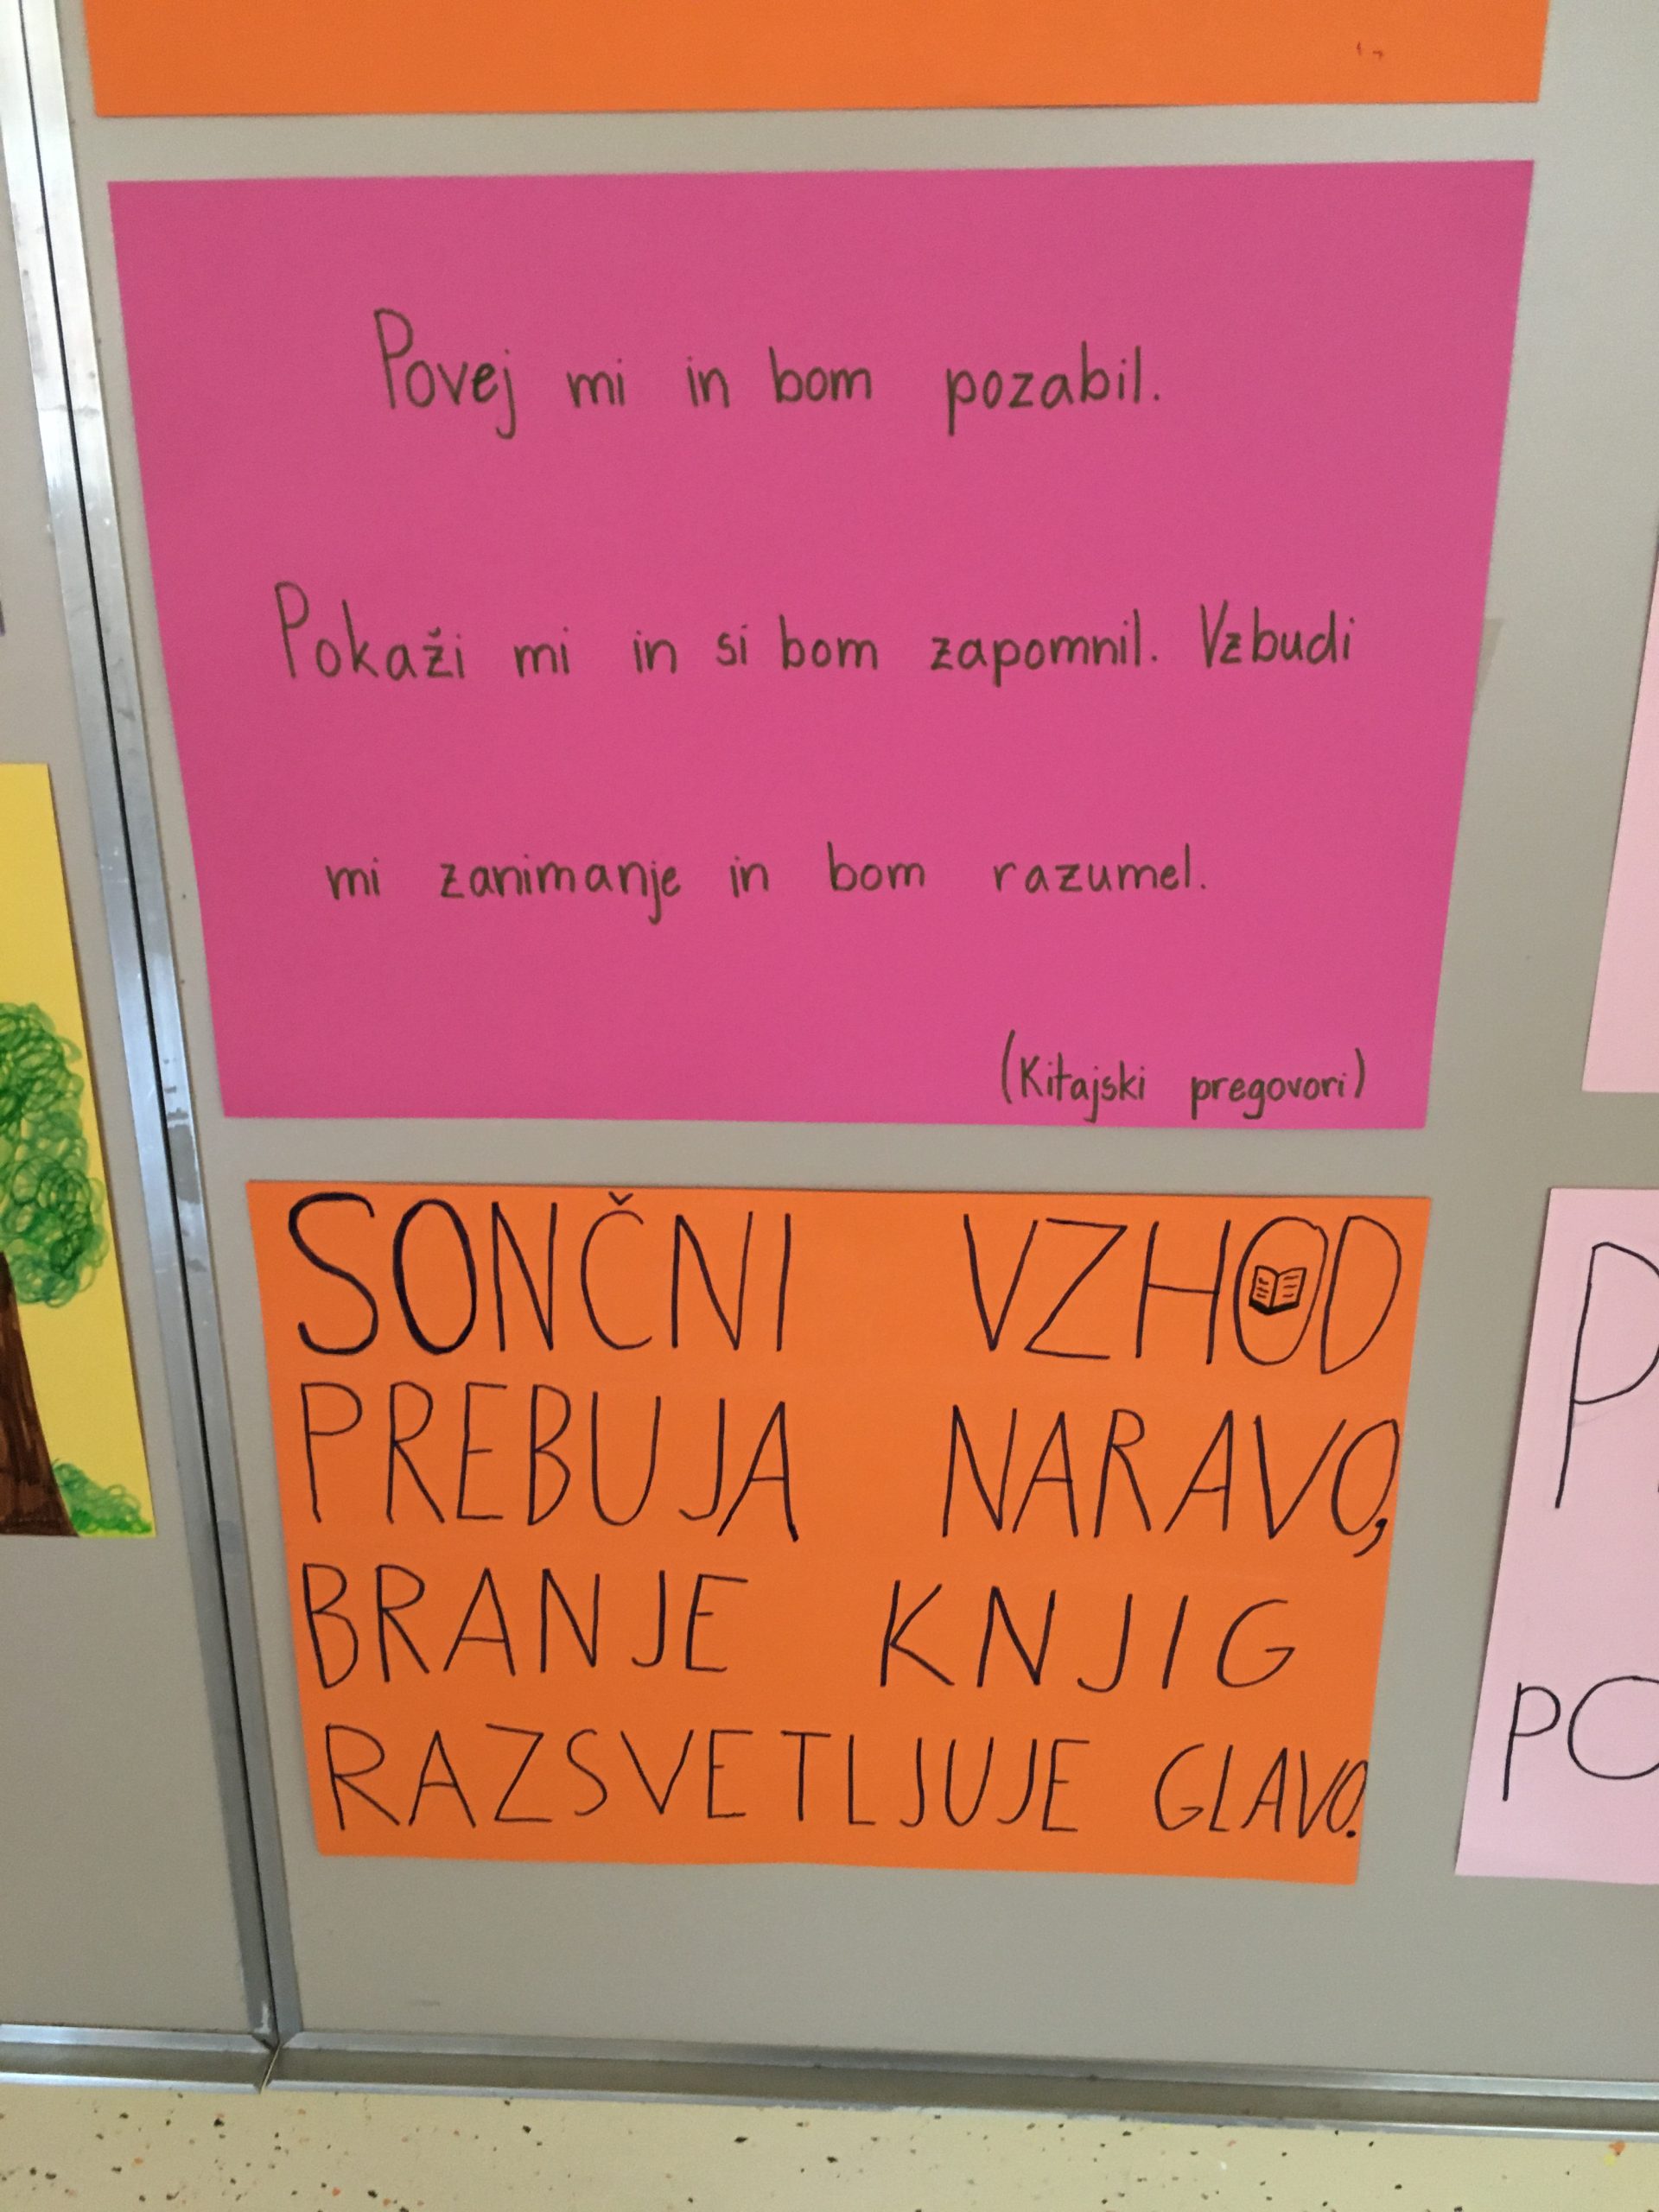 Povej mi in bom pozabil.
Pokaži mi in si bom zapomnil. Vzbudi
mi zanimanje in bom razumel.
(Kitajski pregovori)
SONČNI VZHOD
PREBUJA NARAVO,
BRANJE KNJIG
RAZSVETLJUJE GLAVO.